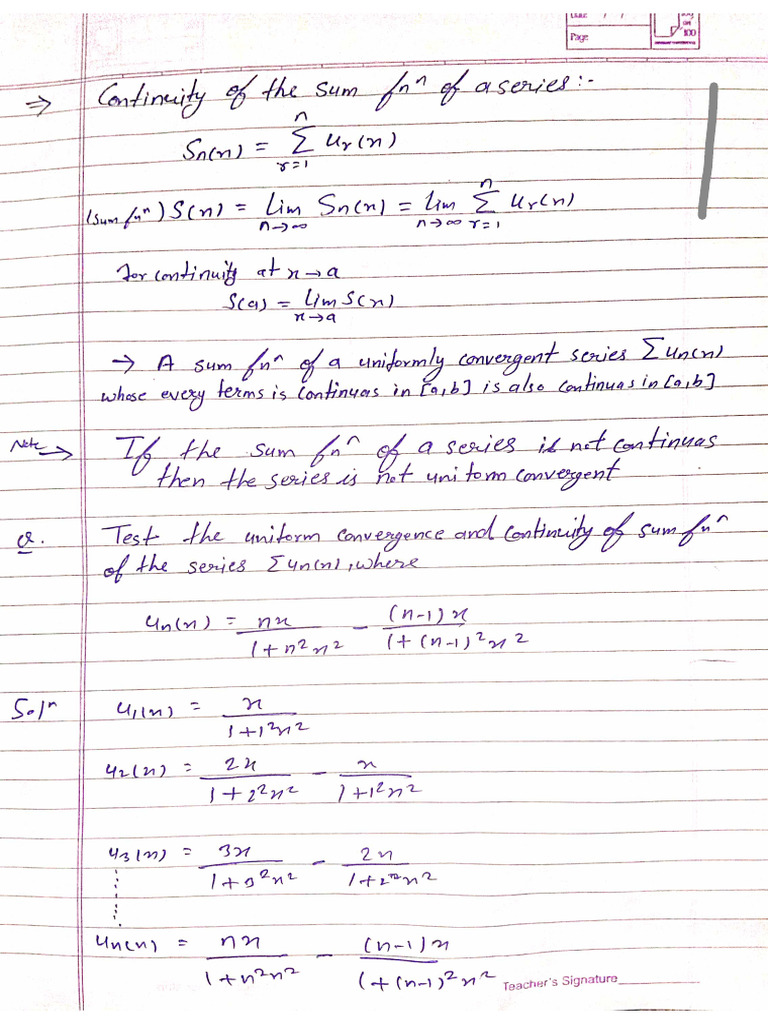 DATE: / /
Page
100
⇒ Continuity of the sum fnⁿ of a series :-
Sn(x) = Σ_{r=1}^{n} ur(x)
(sum fnⁿ) S(x) = Lim_{n→∞} Sn(x) = Lim_{n→∞} Σ_{r=1}^{n} ur(x)
for continuity at x→a
S(a) = Lim_{x→a} S(x)
→ A sum fnⁿ of a uniformly convergent series Σun(x)
whose every terms is continuas in [a,b] is also continuas in [a,b]
Note → If the sum fnⁿ of a series is not continuas
then the series is not uniform convergent
Q. Test the uniform convergence and continuity of sum fnⁿ
of the series Σun(x), where
un(x) = nx/(1+n²x²) - (n-1)x/(1+(n-1)²x²)
Solⁿ u1(x) = x/(1+1²x²)
u2(x) = 2x/(1+2²x²) - x/(1+1²x²)
u3(x) = 3x/(1+3²x²) - 2x/(1+2²x²)
un(x) = nx/(1+n²x²) - (n-1)x/(1+(n-1)²x²)
Teacher's Signature